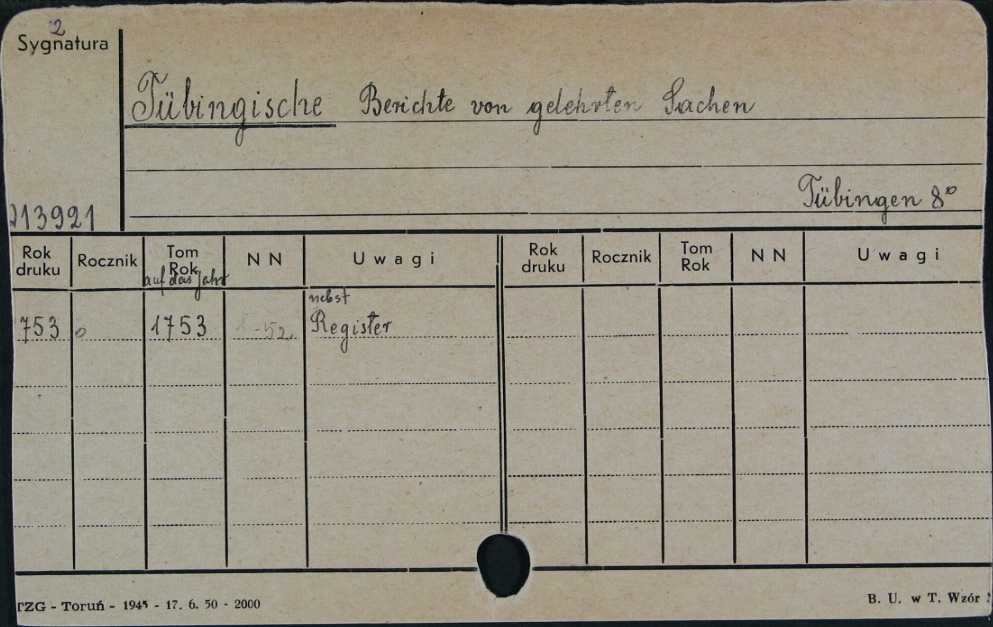 2
Sygnatura
Tübingische Berichte von gelehrten Sachen
Tübingen 8°
13921
Rok druku Rocznik Tom Rok NN Uwagi Rok druku Rocznik Tom Rok NN Uwagi
auf das Jahr
nebst
753 1753 -52. Register
TZG - Toruń - 1945 - 17. 6. 50 - 2000
B. U. w T. Wzór